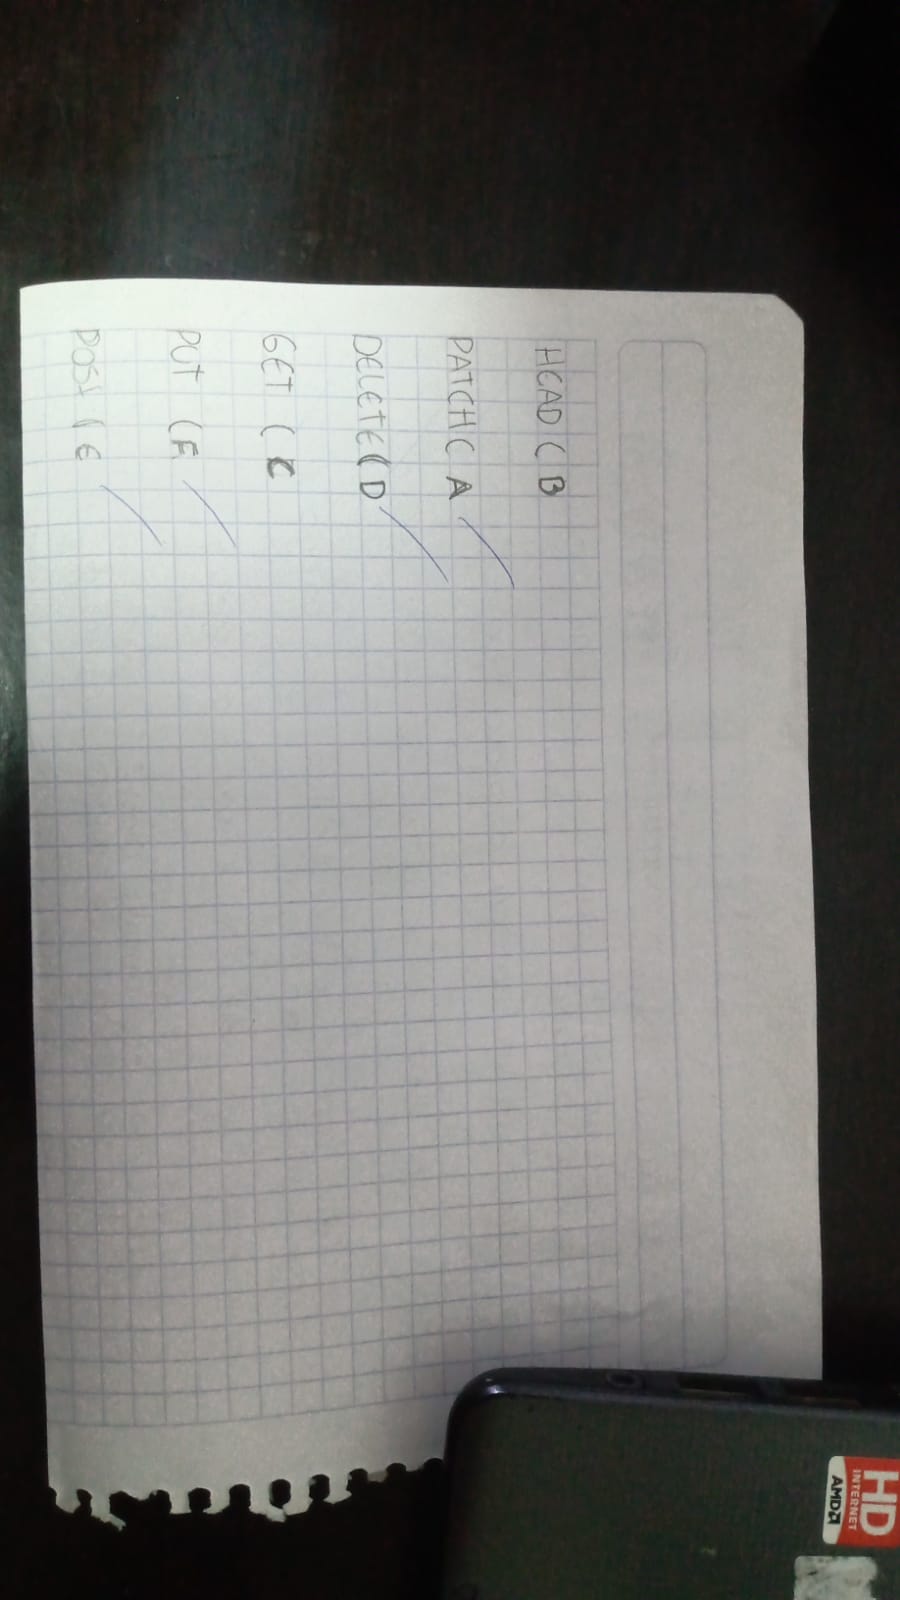 HD
INTERNET
AMD
HEAD ( B
PATCH ( A
DELETE ( D
GET ( C
PUT ( F
POST ( E